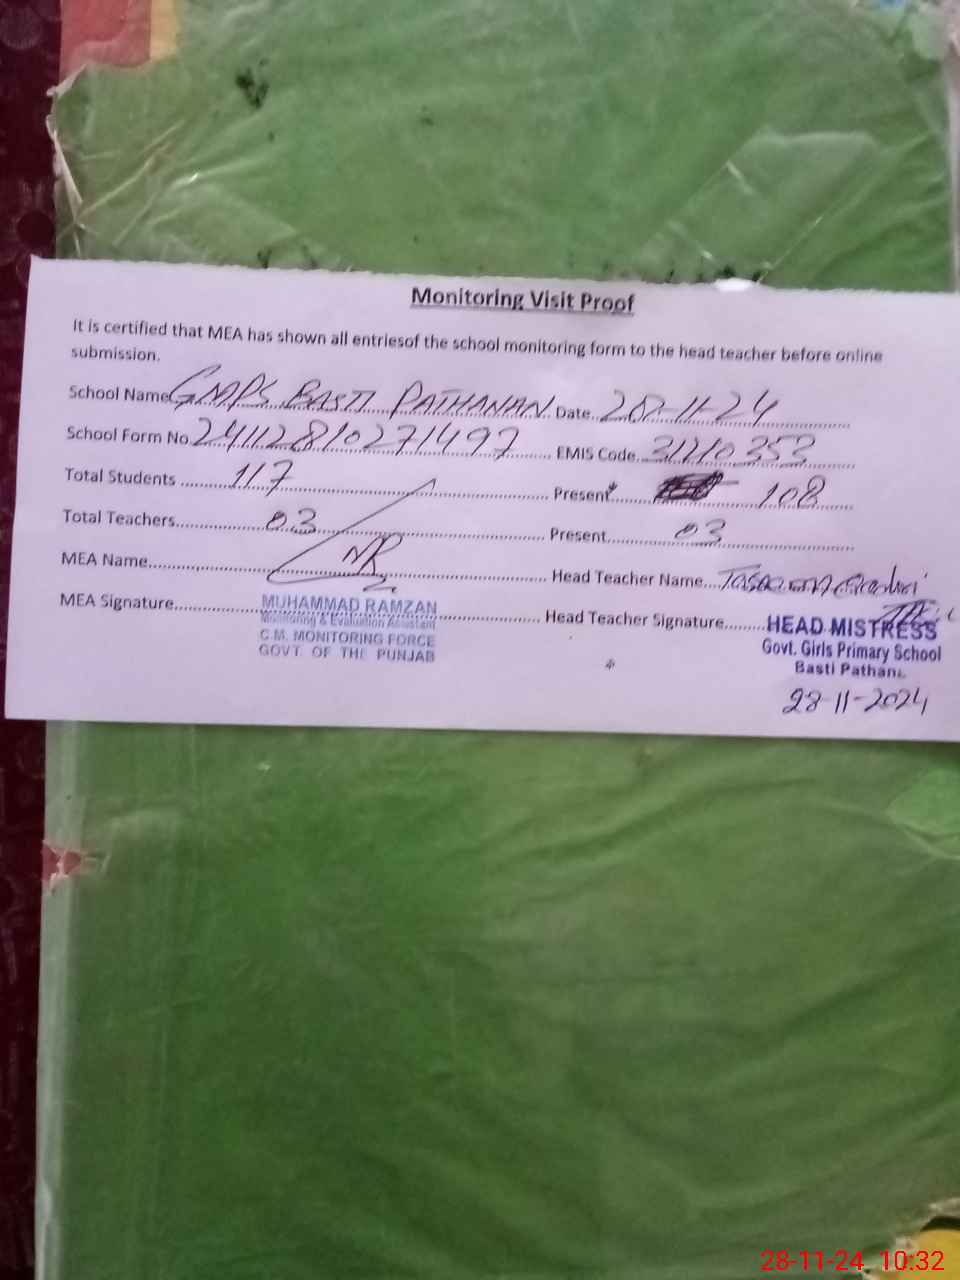 Monitoring Visit Proof
It is certified that MEA has shown all entriesof the school monitoring form to the head teacher before online
submission.
School Name GMPS BASTI PATHANAN Date 28-11-24
School Form No 24112810271497 EMIS Code 31210353
Total Students 117 Present 108
Total Teachers 03 Present 03
MEA Name Head Teacher Name
MEA Signature Head Teacher Signature
MUHAMMAD RAMZAN
Monitoring & Evaluation Assistant
C.M. MONITORING FORCE
GOVT. OF THE PUNJAB
HEAD MISTRESS
Govt. Girls Primary School
Basti Pathan
28-11-2024
28-11-24 10:32